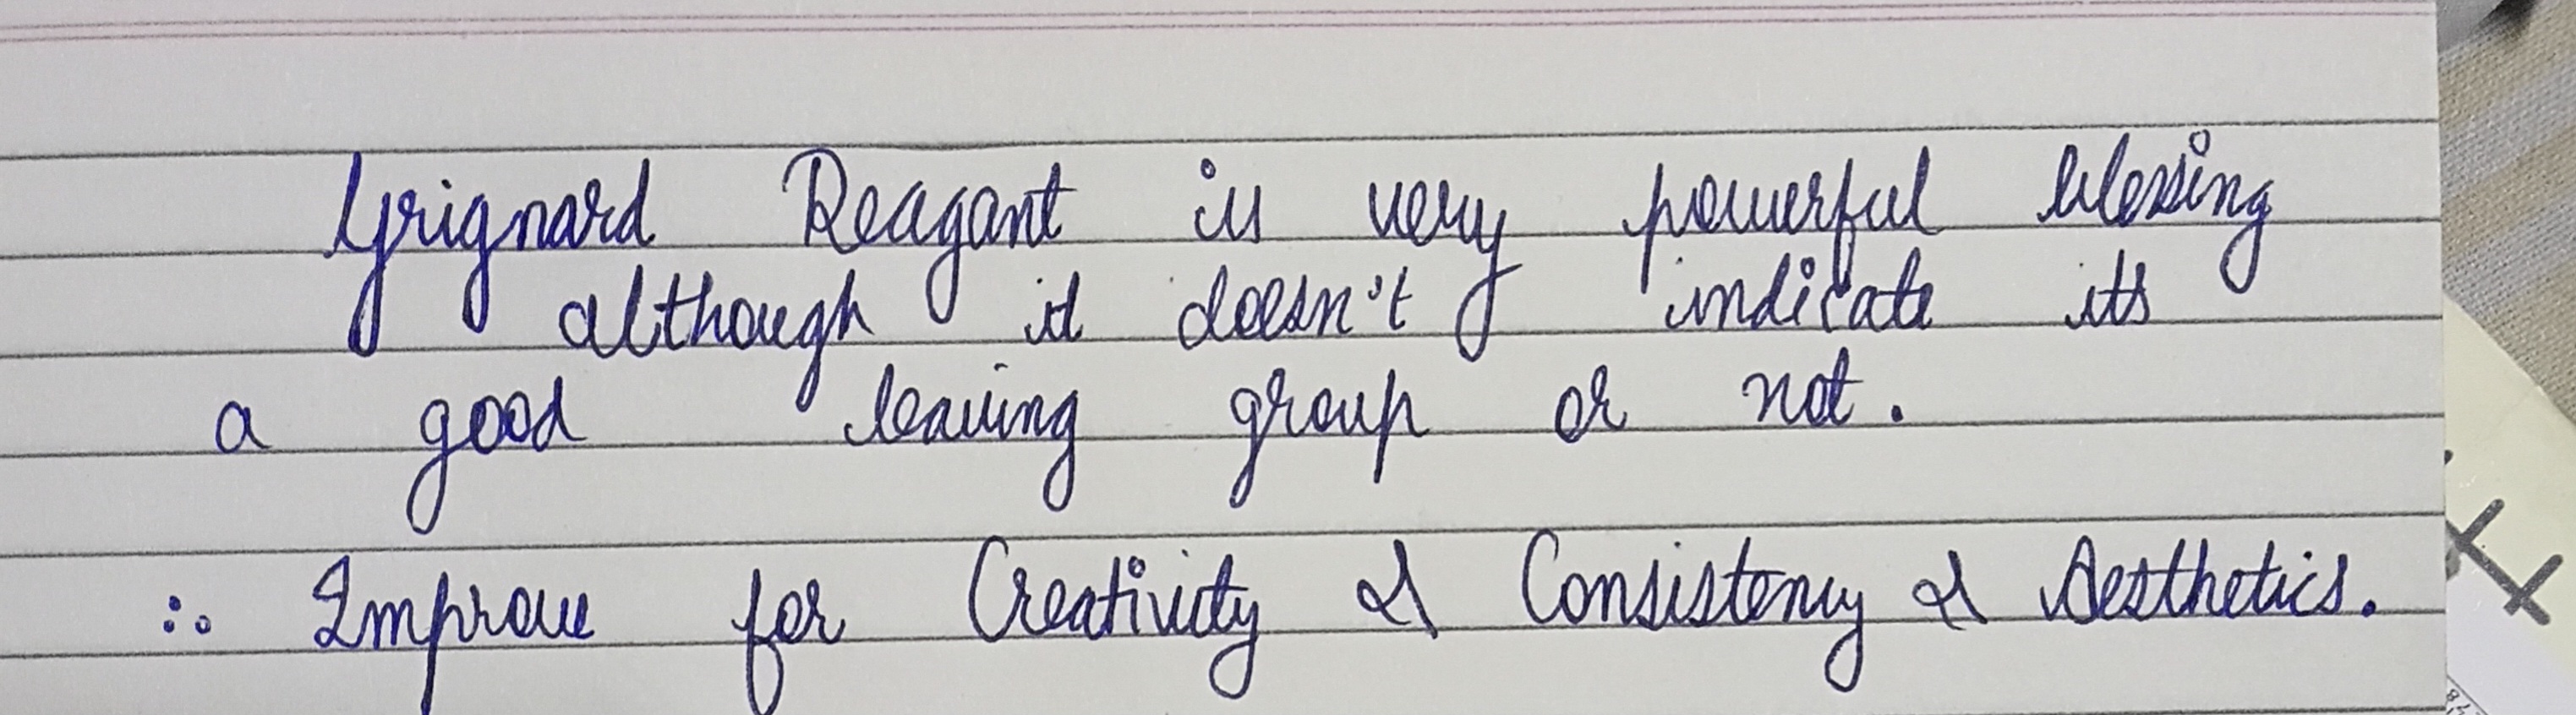 Grignard Reagant is very powerful blessing
although it doesn't indicate its
a good leaving group or not.
∴ Improve for Creativity & Consistency & Aesthetics.